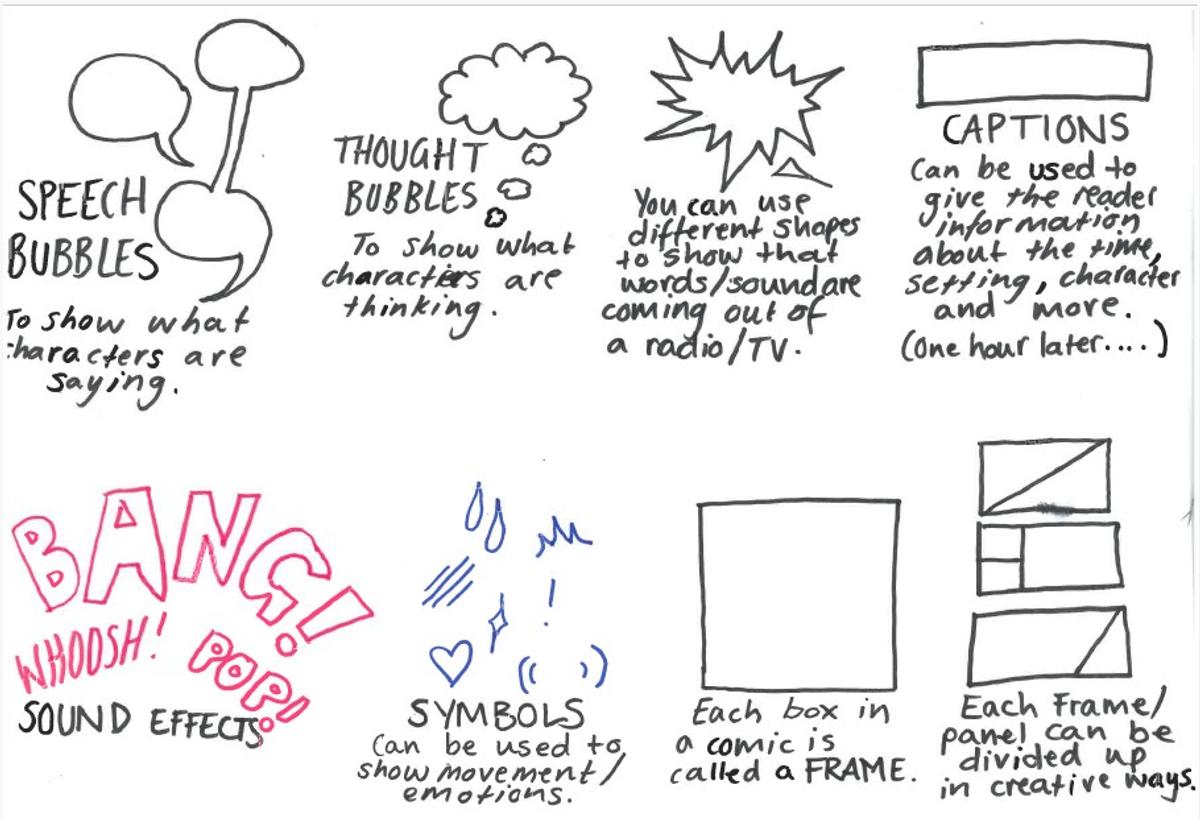 SPEECH
BUBBLES
To show what
characters are
saying.
THOUGHT
BUBBLES
To show what
characters are
thinking.
You can use
different shapes
to show that
words/sound are
coming out of
a radio/TV.
CAPTIONS
Can be used to
give the reader
information
about the time,
setting, character
and more.
(One hour later....)
BANG!
WHOOSH!
POP!
SOUND EFFECTS
!
SYMBOLS
Can be used to
show movement/
emotions.
Each box in
a comic is
called a FRAME.
Each Frame/
panel can be
divided up
in creative ways.